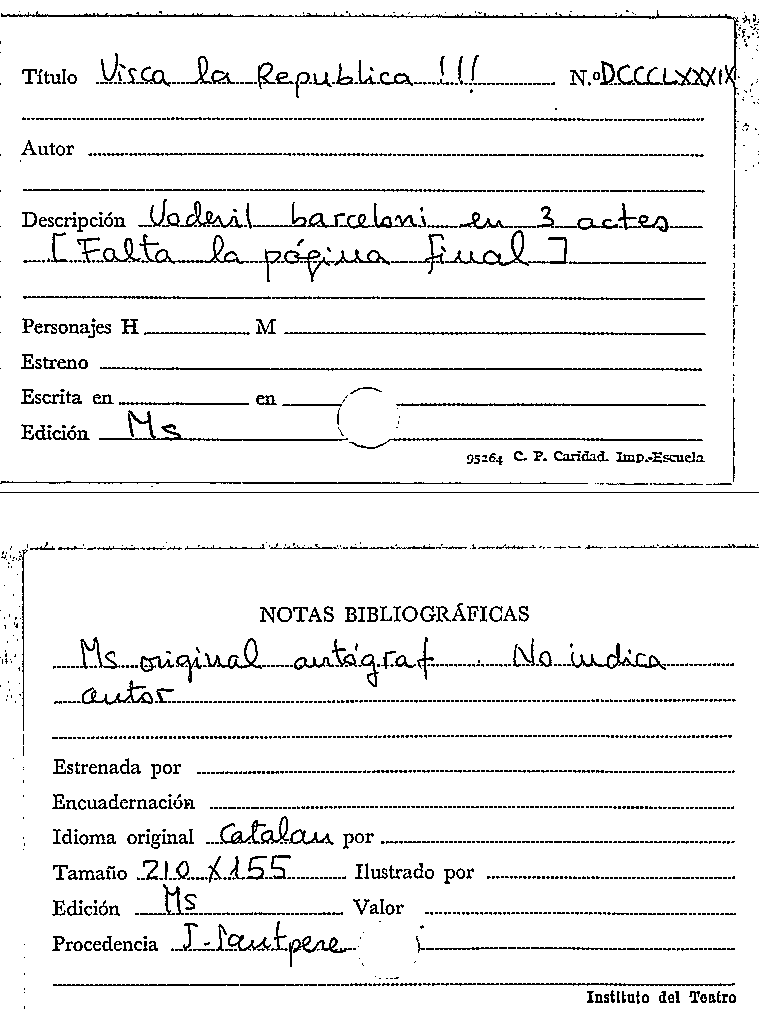 Título Visca la Republica !!! N.º DCCCLXXXIX
Autor
Descripción Vodevil barceloni en 3 actes
[Falta la página final]
Personajes H M
Estreno
Escrita en en
Edición Ms
95264 C. P. Caridad. Imp.-Escuela
NOTAS BIBLIOGRÁFICAS
Ms original autógraf. No indica
autor
Estrenada por
Encuadernación
Idioma original Catalan por
Tamaño 210 X 155 Ilustrado por
Edición Ms Valor
Procedencia J. Santpere
Instituto del Teatro